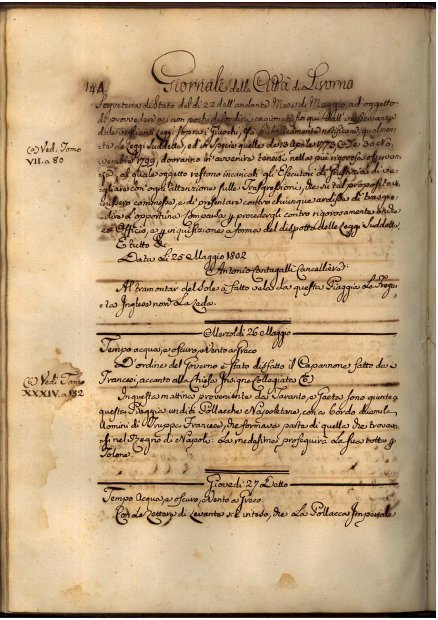 144
Giornale della Città di Livorno
Segreteria di Stato del dì 22 dell'andante Mese di Maggio, ad oggetto
di provvedere ai non pochi disordini cagionati fin qui dall'inosservanza
delle veglianti Leggi sopra i Giuochi, fà pubblicamente notificare, qualmente
le Leggi Suddette, ed in specie quelle de 10 Aprile 1773
(a) Ved. Tomo
VII. a 80
vembre 1799, dovranno in avvenire tenersi nella più rigorosa osservan
za, al quale oggetto restono incaricati gli Esecutori di Giustizia di ve
gliare con ogni attenzione sulle Trasgressioni, che in tal proposito ve
nissero commesse, e di presentare contro chiunque ardisca di trasgre
dire l'opportuna Comparsa, e procedergli contro rigorosamente anche
ex Officio, e per inquisizione a forma del disposto delle Leggi Suddette
E tutto &c
Data Li 25 Maggio 1802
Antonio Contagalli Cancelliere
Al tramontar del Sole à fatto vela da questa Piaggia La Frega
ta Inglese nom. La Leda.
Mercoldi 26 Maggio
Tempo acqua, e oscuro, Vento a Greco
D'ordine del Governo è stato disfatto il Capannone fatto de
Francesi, accanto alla Chiesa Insigne Collegiata
(a) Vedi Tomo
XXXIV. a 182
In questa mattina provenienti da Taranto, e Gaeta sono giunte a
questa Piaggia undici Pollacche Napoletane, con a bordo duemila
Uomini di Truppa Francese, che formava parte di quella che trovava
si nel Regno di Napoli: La medesima proseguirà La sua rotta p.
Tolone.
Giovedi 27 Detto
Tempo Acqua, e oscuro, Vento a Greco.
Con Le Lettere di Levante si è inteso, che La Pollacca Imperiale